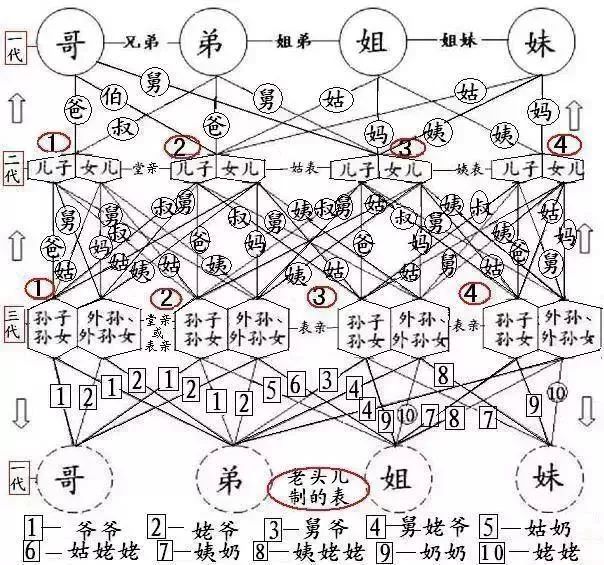 一代 哥 兄弟 弟 姐弟 姐 姐妹 妹
爸 伯 叔 爸 舅 舅 姑 妈 姑 姨 姨 妈
① ② ③ ④
二代 儿子 女儿 堂亲 儿子 女儿 姑表 儿子 女儿 姨表 儿子 女儿
舅 叔 舅 姨 姨 姑 叔 姨 叔
爸 姑 妈 叔 姑 姨 姑 爸 妈 姨 姑 姨 爸 舅 姑 姨 舅 妈
① ② ③ ④
三代 孙子 孙女 外孙、外孙女 堂亲或表亲 孙子 孙女 外孙、外孙女 表亲 孙子 孙女 外孙、外孙女 表亲 孙子 孙女 外孙、外孙女
1 2 1 2 1 2 1 2 5 6 3 4 4 8 9 10 7 8 7 9 10
一代 哥 弟 老头儿制的表 姐 妹
1—爷爷 2—姥爷 3—舅爷 4—舅姥爷 5—姑奶
6—姑姥姥 7—姨奶 8—姨姥姥 9—奶奶 10—姥姥